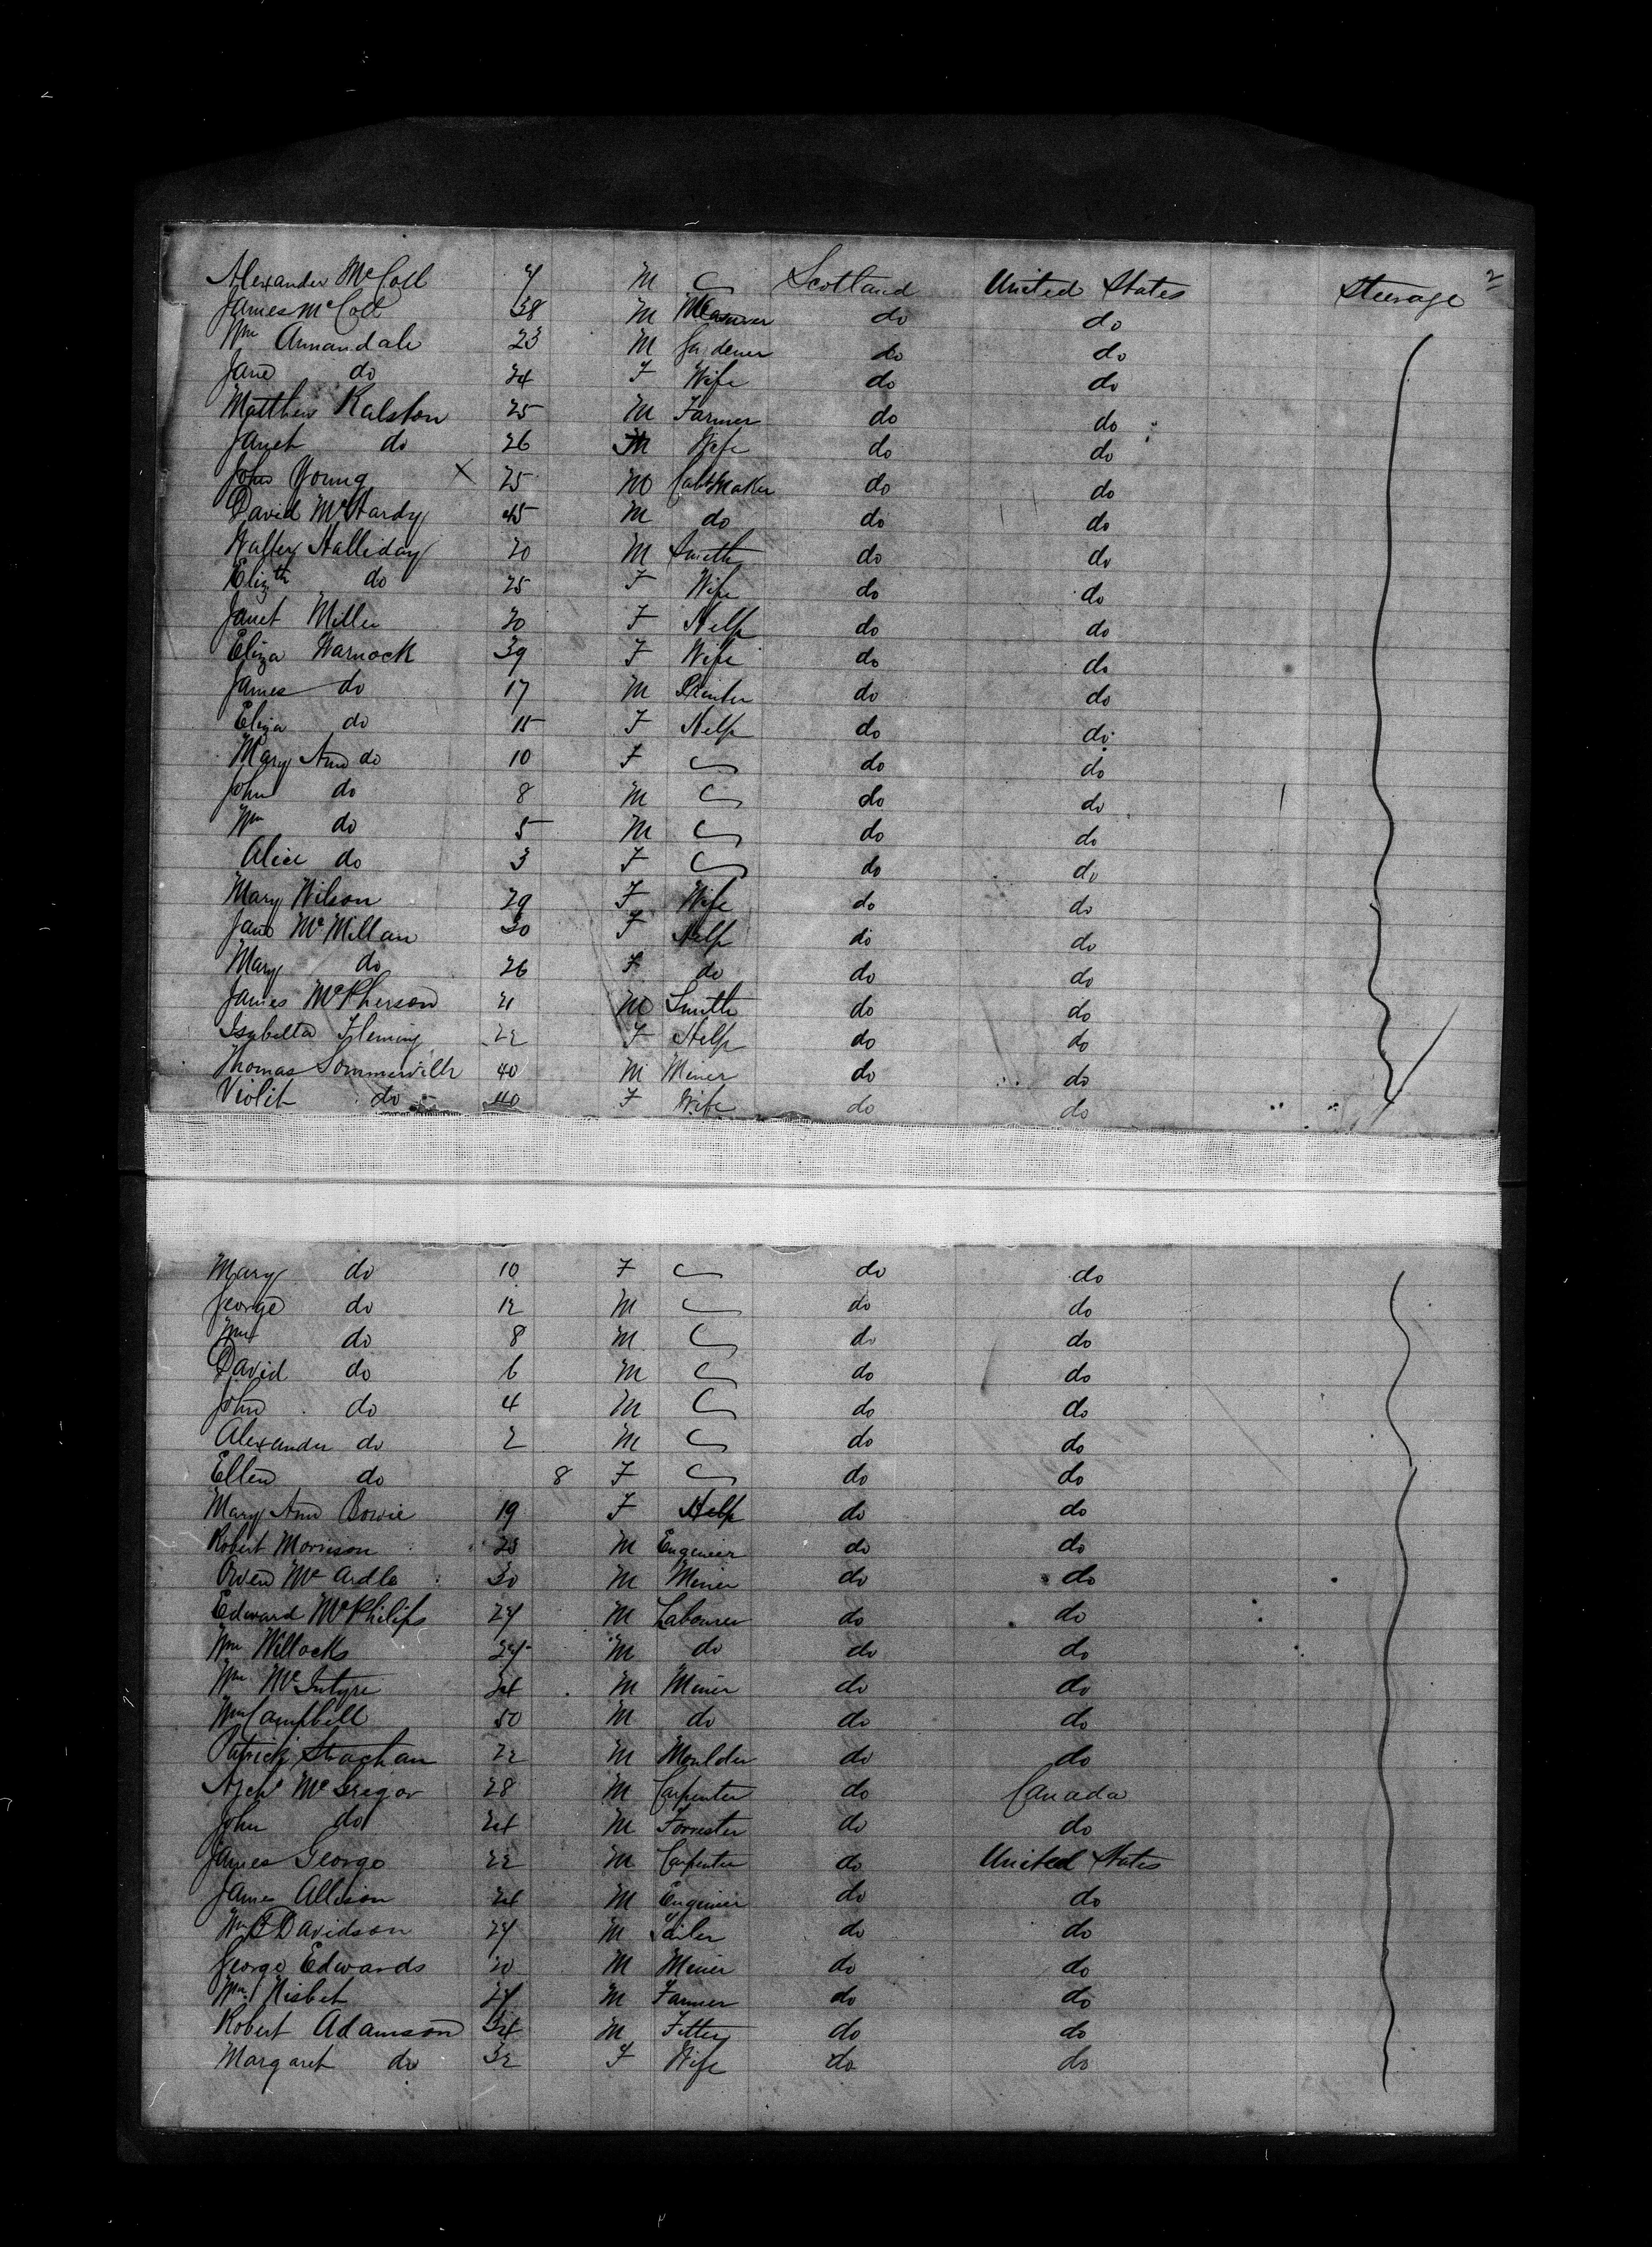 2
Alexander McColl 4 M Scotland United States Steerage
James McColl 38 M do do
Wm Annandale 23 M Gardener do do
Jane do 24 F Wife do do
Matthew Ralston 25 M Farmer do do
Janet do 26 Wife do do
John Young X 25 M CabtMaker do do
David McHardy 45 M do do do
Walter Halliday 20 M Smith do do
Elizth do 25 F Wife do do
Janet Miller 20 F Help do do
Eliza Warnock 39 F Wife do do
James do 17 M do do
Eliza do 15 F Help do do
Mary Ann do 10 F do do
John do 8 M do do
Wm do 5 M do do
Alice do 3 F do do
Mary Wilson 29 F Wife do do
Jane McMillan 30 F Help do do
Mary do 26 F do do do
James McPherson 21 M Smith do do
Isabella Fleming 22 F Help do do
Thomas Sommerville 40 M Miner do do
Violet do 40 F Wife do do
Mary do 10 F do do
George do 12 M do do
Wm do 8 M do do
David do 6 M do do
John do 4 M do do
Alexander do 2 M do do
Ellen do 8 F do do
Mary Ann Bowie 19 F Help do do
Robert Morrison 23 M Engineer do do
Owen McArdle 30 M Miner do do
Edward McPhilips 24 M Labourer do do
Wm Willocks 24 M do do do
Wm McIntyre 34 M Miner do do
Wm Campbell 50 M do do do
Patrick Strachan 22 M Moulder do do
Archd McGregor 28 M Carpenter do Canada
John do 24 M Forrester do do
James George 22 M Carpenter do United States
James Allison 24 M Engineer do do
Wm B Davidson 24 M do do
George Edwards 20 M Miner do do
Wm Nisbet 24 M Farmer do do
Robert Adamson 34 M Fitter do do
Margaret do 32 F Wife do do